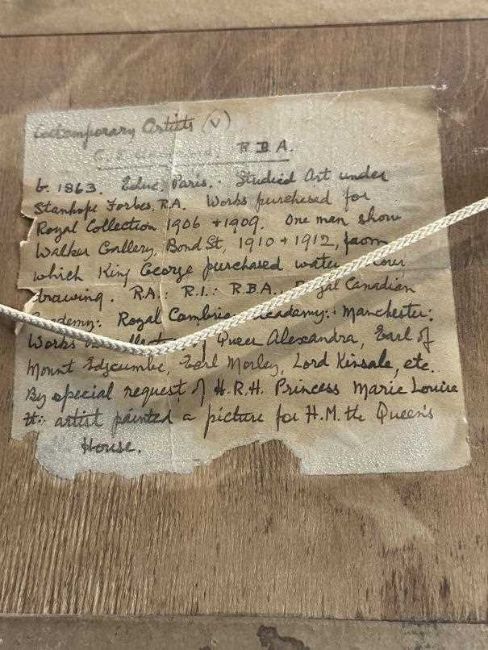 Contemporary Artists (V)
R.B.A.
b. 1863. Educ. Paris. Studied Art under
Stanhope Forbes, R.A. Works purchased for
Royal Collection 1906 + 1909. One man show
Walker Gallery, Bond St, 1910 + 1912, from
which King George purchased water
drawing. R.A.: R.I.: R.B.A. Royal Canadian
Royal Cambrian Academy: Manchester:
Works Queen Alexandra, Earl of
Mount Edgcumbe, Earl Morley, Lord Kinsale, etc.
By special request of H.R.H. Princess Marie Louise
the artist painted a picture for H.M. the Queen's
House.